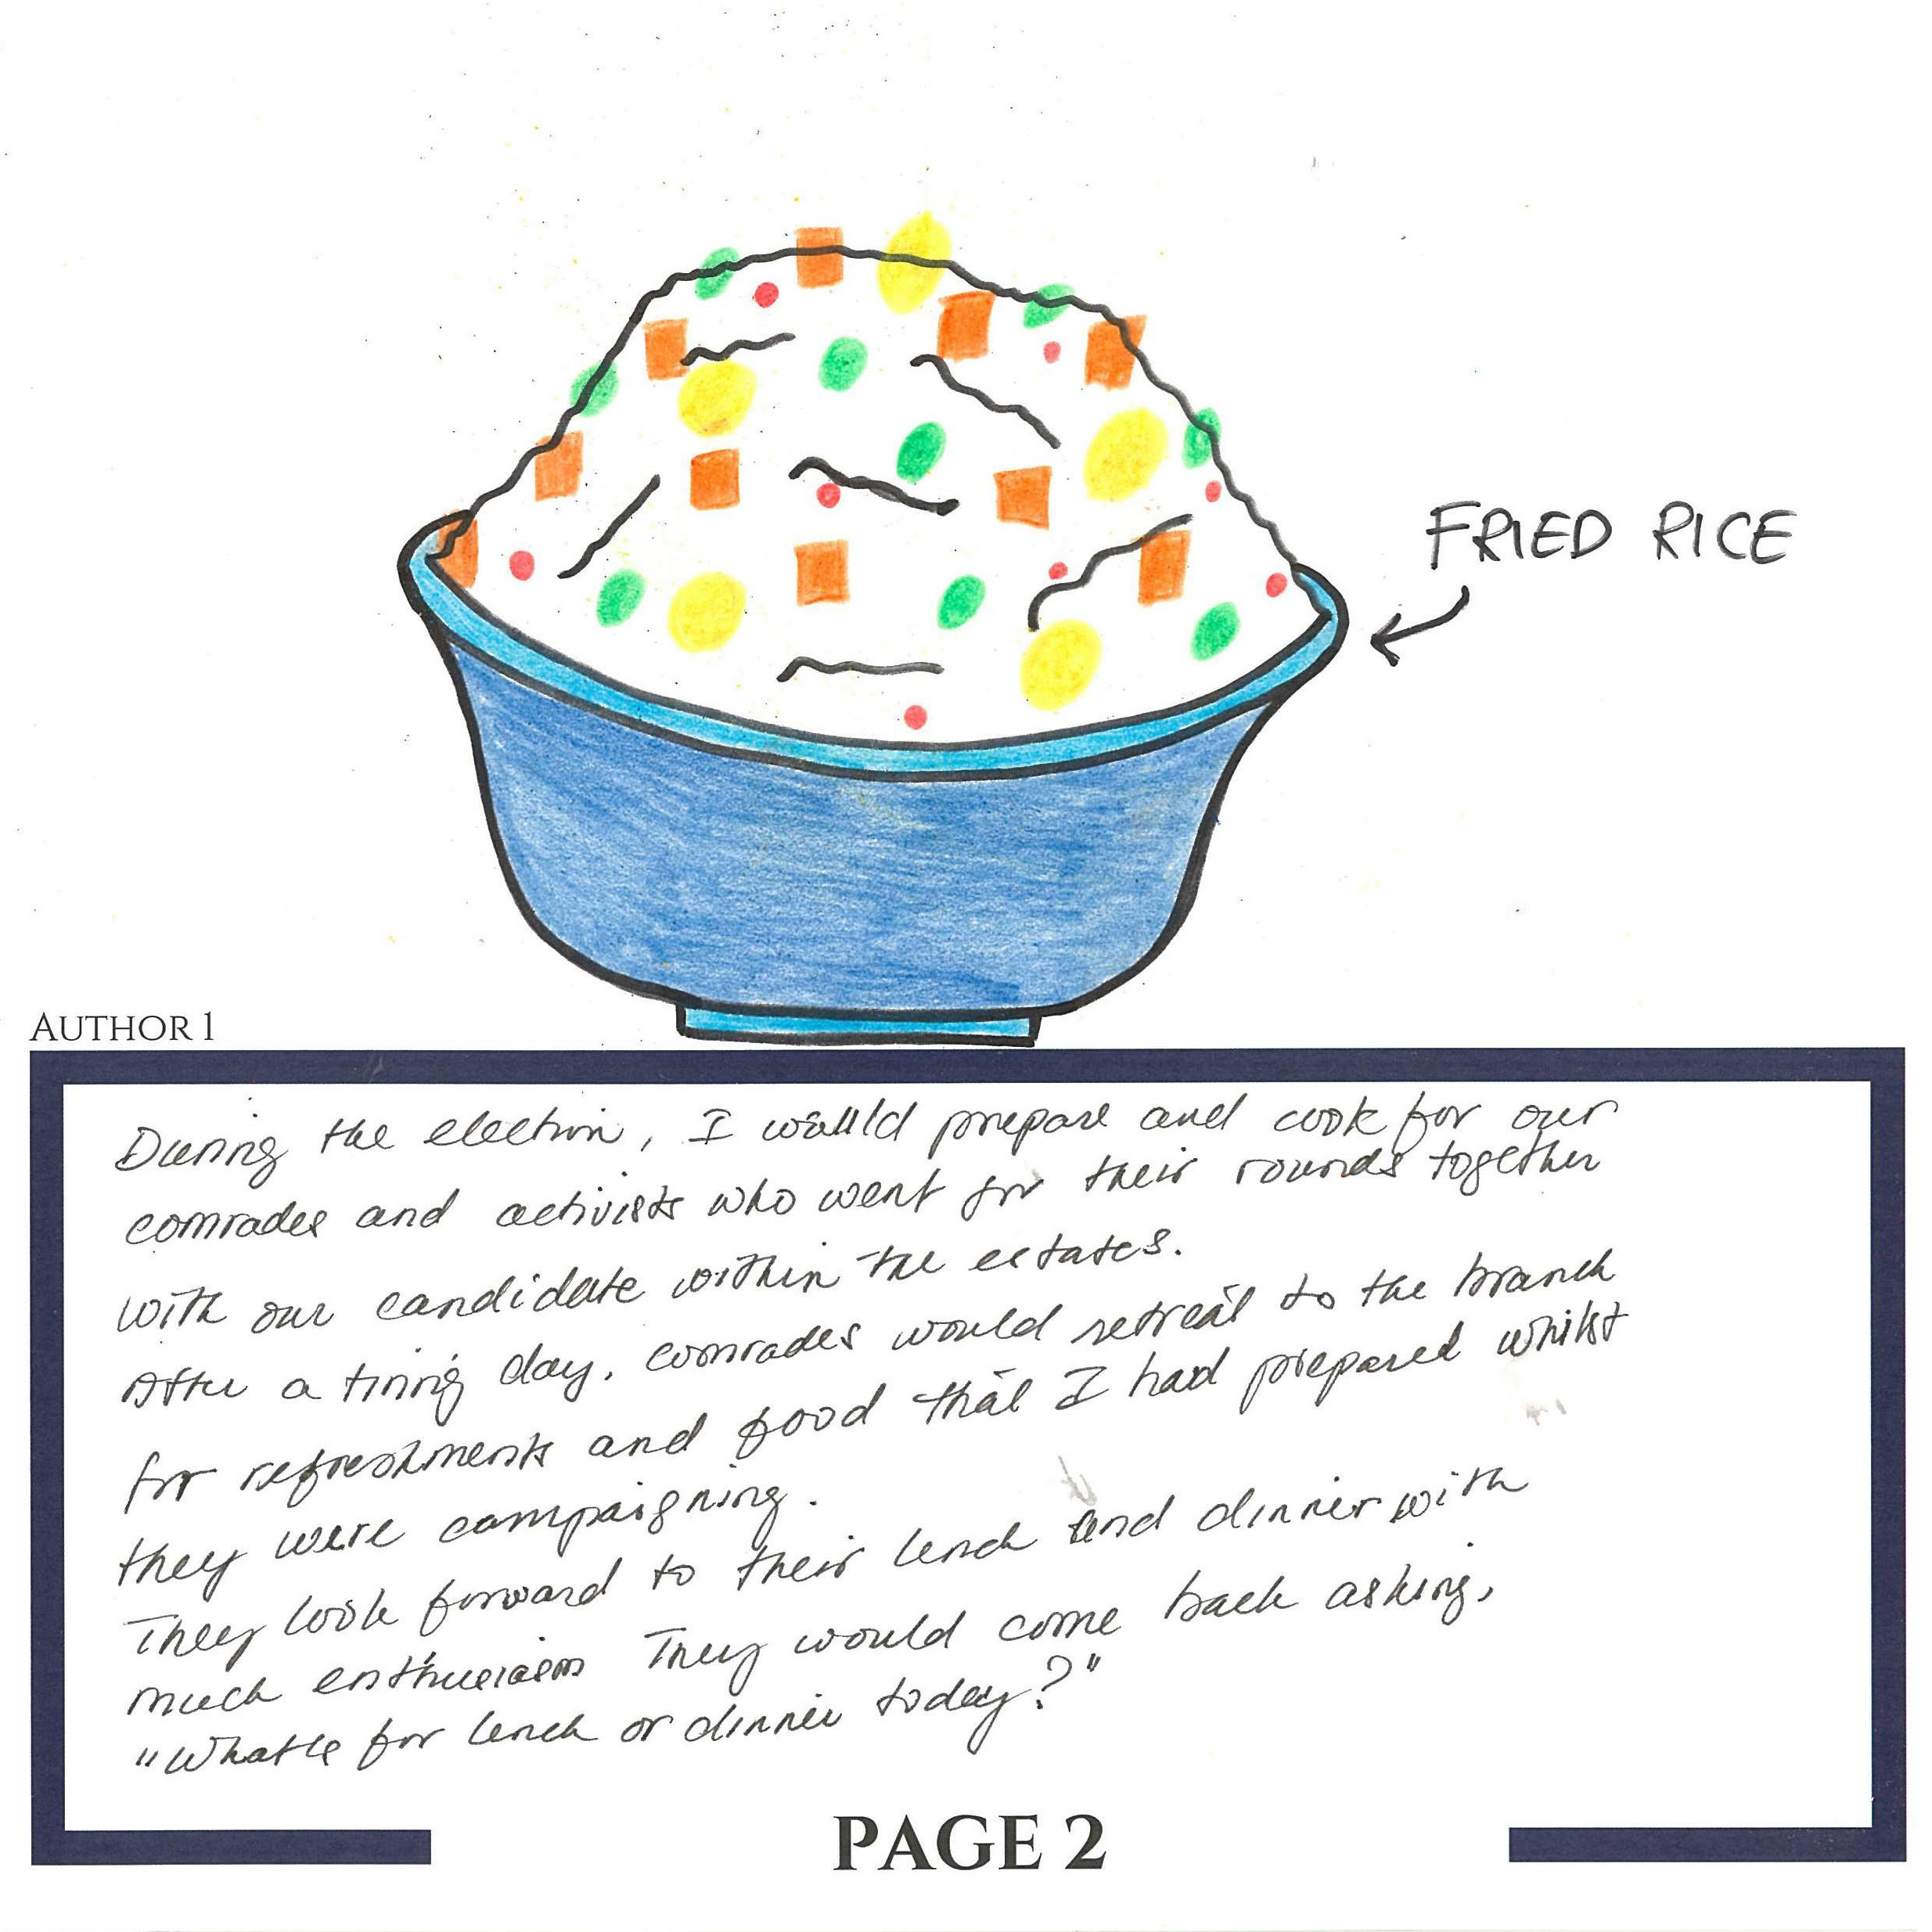 FRIED RICE
AUTHOR 1
During the election, I would prepare and cook for our
comrades and activists who went for their rounds together
with our candidate within the estates.
After a tiring day, comrades would retreat to the branch
for refreshments and food that I had prepared whilst
they were campaigning.
They look forward to their lunch and dinner with
much enthusiasm They would come back asking,
"What's for lunch or dinner today?"
PAGE 2